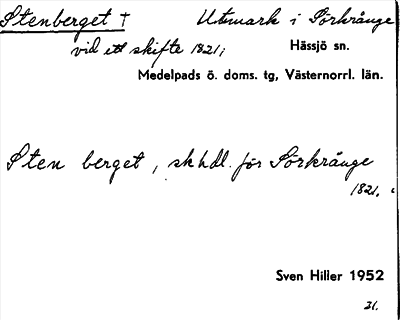 Stenberget † Utmark i Sörkrånge
vid ett skifte 1821; Hässjö sn.
Medelpads ö. doms. tg, Västernorrl. län.
Sten berget, skhdl. för Sörkrånge
1821.
Sven Hiller 1952
21.